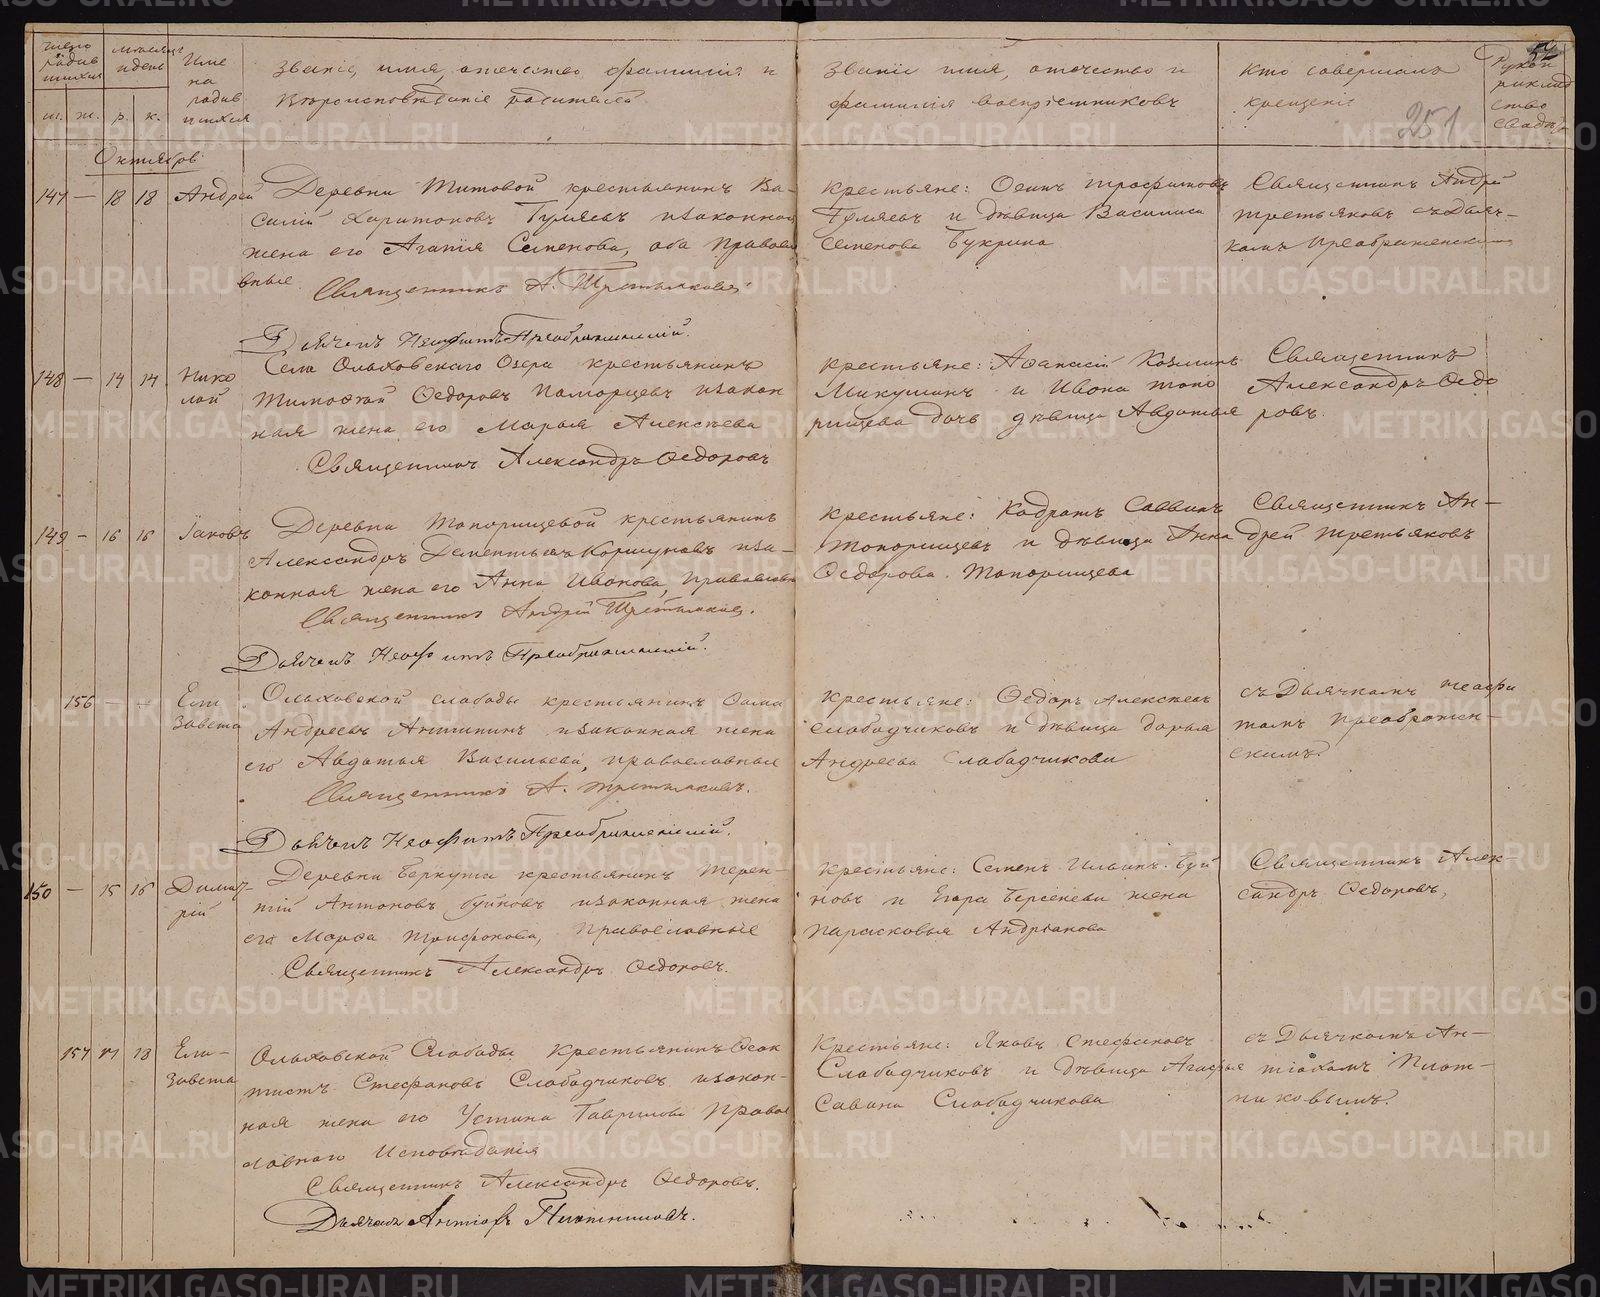 число родившихся
мѣсяцъ и день
Имена родившихся
Званіе, имя, отечество, фамилія и
вѣроисповѣданіе родителей
Званіе имя, отечество и
фамилія воспріемниковъ
Кто совершалъ
крещеніе
Рукоприкладство
52
251
м. ж. р. к.
Октябрь
147 — 18 18 Андрей
Деревни Титовой крестьянинъ Ва-
силій Харитоновъ Гуляевъ изаконная
жена его Агапія Семенова, оба правосла
вные
Священникъ А. Третьяковъ
Дьячекъ Неофитъ Преображенскій.
Крестьяне: Осипъ Трофимовъ
Гуляевъ и дѣвица Василиса
Семенова Букрина
Священникъ Андрей
Третьяковъ съ Дьяч-
комъ Преображенскимъ
148 — 14 14 Нико
лай
Села Ольховскаго Озера крестьянинъ
Тимофей Ѳедоровъ Поморцевъ изакон
ная жена его Марья Алексѣева
Священникъ Александръ Ѳедоровъ
Крестьяне: Аѳанасій Козминъ
Микушинъ и Ивана Топо
рищева дочь дѣвица Авдотья
Священникъ
Александръ Ѳедо
ровъ.
149 — 16 16 Іаковъ
Деревни Топорищевой крестьянинъ
Александръ Дементьевъ Коршуновъ иза-
конная жена его Анна Иванова, православн
Священникъ Андрей Третьяковъ.
Дьячекъ Неофитъ Преображенскій.
Крестьяне: Кодратъ Саввинъ
Топорищевъ и дѣвица Анна
Ѳедорова Топорищева
Священникъ Ан-
дрей Третьяковъ
156 — — Ели
завета
Ольховской слободы крестьянинъ Ѳома
Андреевъ Антипинъ изаконная жена
его Авдотья Васильева, православные
Священникъ А. Третьяковъ.
Дьячекъ Неофитъ Преображенскій.
Крестьяне: Ѳедоръ Алексѣевъ
Слободчиковъ и дѣвица Дарья
Андреева Слободчикова
съ Дьячкомъ Неофи
томъ Преображен-
скимъ
150 — 15 16 Димит-
рій
Деревни Беркута крестьянинъ Терен-
тій Антоновъ Буйновъ изаконная жена
его Марфа Трифонова, православные
Священникъ Александръ Ѳедоровъ.
Крестьяне: Семенъ Ильинъ Буй
новъ и Егора Берсенева жена
Парасковья Андріанова
Священникъ Алек-
сандръ Ѳедоровъ,
157 17 18 Ели-
завета
Ольховской Слободы крестьянинъ Ѳеок
тистъ Стефановъ Слободчиковъ изакон-
ная жена его Устина Гаврилова Правос
лавнаго Исповѣданія
Священникъ Александръ Ѳедоровъ.
Дьячекъ Антіохъ Плотниковъ.
Крестьяне: Яковъ Стефановъ
Слободчиковъ и дѣвица Агафья
Савина Слободчикова
съ Дьячкомъ Ан-
тіохомъ Плот-
никовымъ.
METRIKI.GASO-URAL.RU